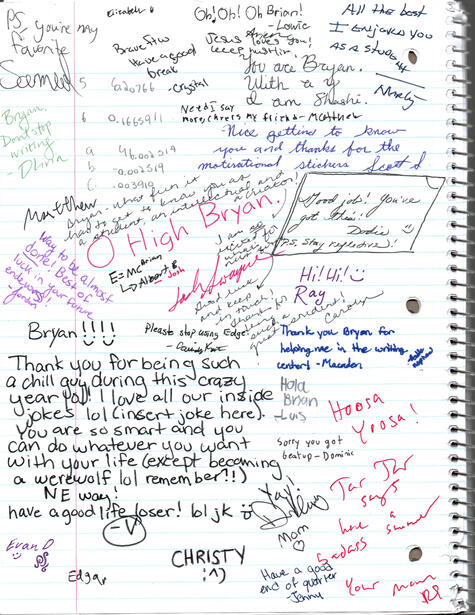 PS, you're my
favorite
Elizabeth
Oh! Oh! Oh Brian!
-Lowie
All the best
I enjoyed you
as a student
Brave few
Have a good
break
Jesus
loves you!
keep
You are Bryan.
With a y
I am Shashi.
-Crystal
5 620766
6 0.1665911
Need I say
more, cheers my friend - Matthew
Bryan.
Don't stop
writing
Nice getting to know
you and thanks for the
motivational stickers Scott S
a 46.002519
b -0.002519
c .003919
Matthew
Bryan - what fun it
had to get to know you as
a student, an intellectual, and
a creator!
Good job! You've
got this!
Dodie
P.S. stay reflective!
O High Bryan.
Way to be almost
done! Best of
luck in your future
endeavors!
E=MC Brian
Albert E
- Josh
I am so
Good luck
and keep
in touch!
thanks for
being a
great resident!
Carolyn
Hi! Hi!
Ray
Bryan!!!!
Please stop using Edge!
Thank you Bryan for
helping me in the writing
center! - Macander
Thank you for being such
a chill guy during this crazy
year yo! I love all our inside
jokes lol (insert joke here).
You are so smart and you
can do whatever you want
with your life (except becoming
a werewolf lol remember!!)
NE way!
have a good life loser! lol jk
-V
Hola
Brian
-Luis
Hoosa
Yoosa!
Sorry you got
beat up - Dominic
Yay!
Mom
Jar Jar
says
have a summer
badass
Your mom
Evan D
PS
Edgar
CHRISTY
:^)
Have a good
end of quarter
Jenny